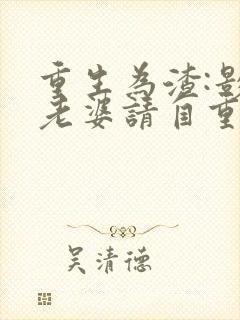 重生為渣:影
老婆請自重
吳清德